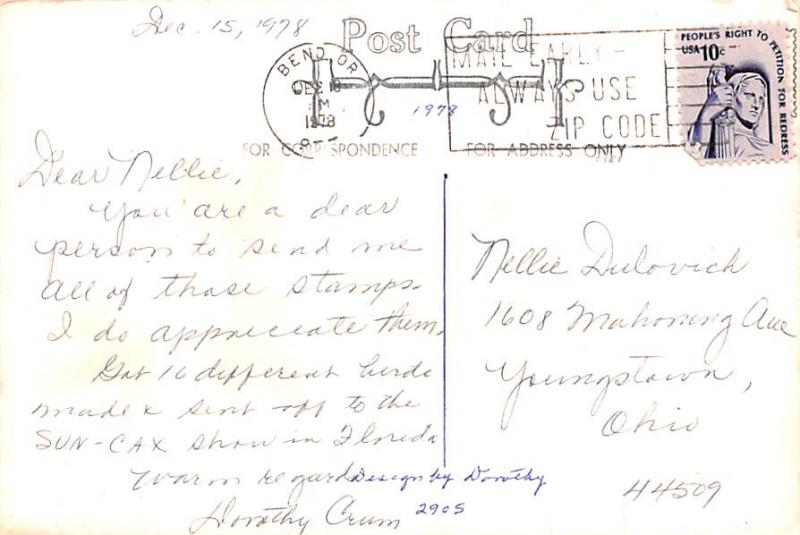 Dec. 15, 1978
Post Card
BEND, OR
DEC 18
PM
1978
1978
MAIL EARLY-
ALWAYS USE
ZIP CODE
PEOPLE'S RIGHT TO PETITION FOR REDRESS
USA 10c
FOR CORRESPONDENCE
FOR ADDRESS ONLY
Dear Nellie,
You are a dear
person to send me
all of those stamps.
I do appreciate them.
Got 16 different birds
made & sent off to the
SUN-CAX show in Florida
Warm regards
Dorothy Crum
Design by Dorothy
2905
Nellie Dulovich
1608 Mahoning Ave
Youngstown,
Ohio
44509